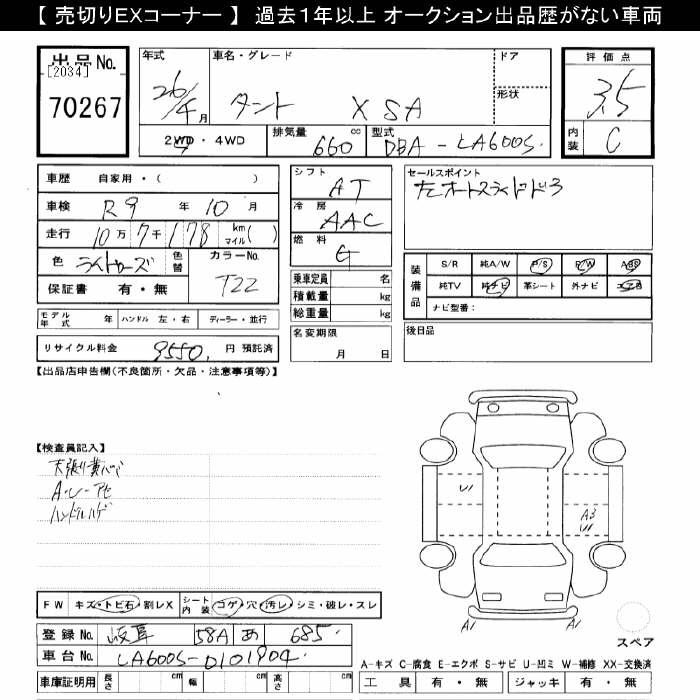 【 売切りEXコーナー 】 過去1年以上 オークション出品歴がない車両
出品No.
[2034]
70267
年式
26/4 月
車名・グレード
タント X SA
ドア
形状
2WD・4WD
排気量 660 cc
型式 DBA-LA600S
評価点
3.5
内装
C
車歴 自家用・( )
車検 R9 年 10 月
走行 10万 7千 178 km マイル( )
色 ライトローズ 色替
カラーNo. T22
保証書 有・無
モデル年式 年 ハンドル 左・右 ディーラー・並行
リサイクル料金 9550 円 預託済
シフト AT
冷房 AAC
燃料 G
乗車定員 名
積載量 kg
総重量 kg
名変期限 月 日
セールスポイント
左オートスライドドア
装備品
S/R 純A/W P/S P/W ABS
純TV 純ナビ 革シート 外ナビ エアB
ナビ型番:
後日品
【出品店申告欄(不良箇所・欠品・注意事項等)】
【検査員記入】
天張り黄バミ
ハンドルハゲ
FW キズ・トビ石・割レX
シート内装 コゲ・穴・汚レ・シミ・破レ・スレ
登録No. 岐阜 58A あ 685
車台No. LA600S-0101904
車庫証明用 長さ cm 幅 cm 高さ cm
A3
A1 A1
スペア
A-キズ C-腐食 E-エクボ S-サビ U-凹ミ W-補修 XX-交換済
工具 有・無 ジャッキ 有・無